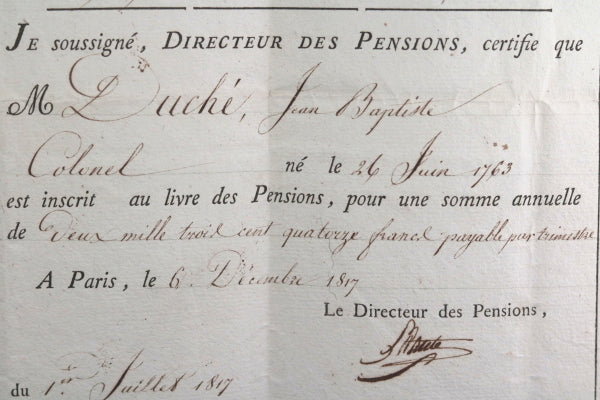 JE soussigné, DIRECTEUR DES PENSIONS, certifie que
M Duché, Jean Baptiste
Colonel né le 26 Juin 1763
est inscrit au livre des Pensions, pour une somme annuelle
de Deux mille trois cent quatorze francs payable par trimestre
A Paris, le 6 Décembre 1817
Le Directeur des Pensions,
du 1er Juillet 1817